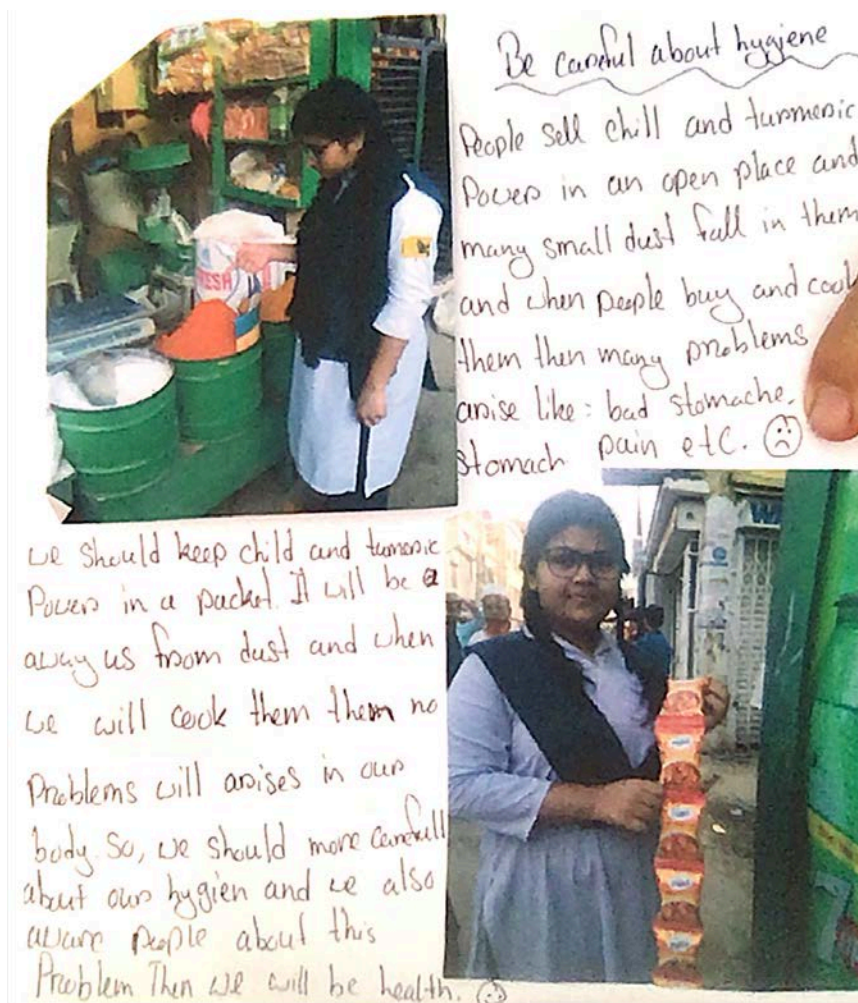 Be careful about hygiene
People sell chill and turmeric
Power in an open place and
many small dust fall in them
and when people buy and cook
them then many problems
arise like: bad stomache,
stomach pain etc.
FRESH
we should keep child and tumeric
Power in a packet. It will be a
away us from dust and when
we will cook them them no
Problems will arises in our
body. So, we should more carefull
about our hygien and we also
aware people about this
Problem Then we will be health.